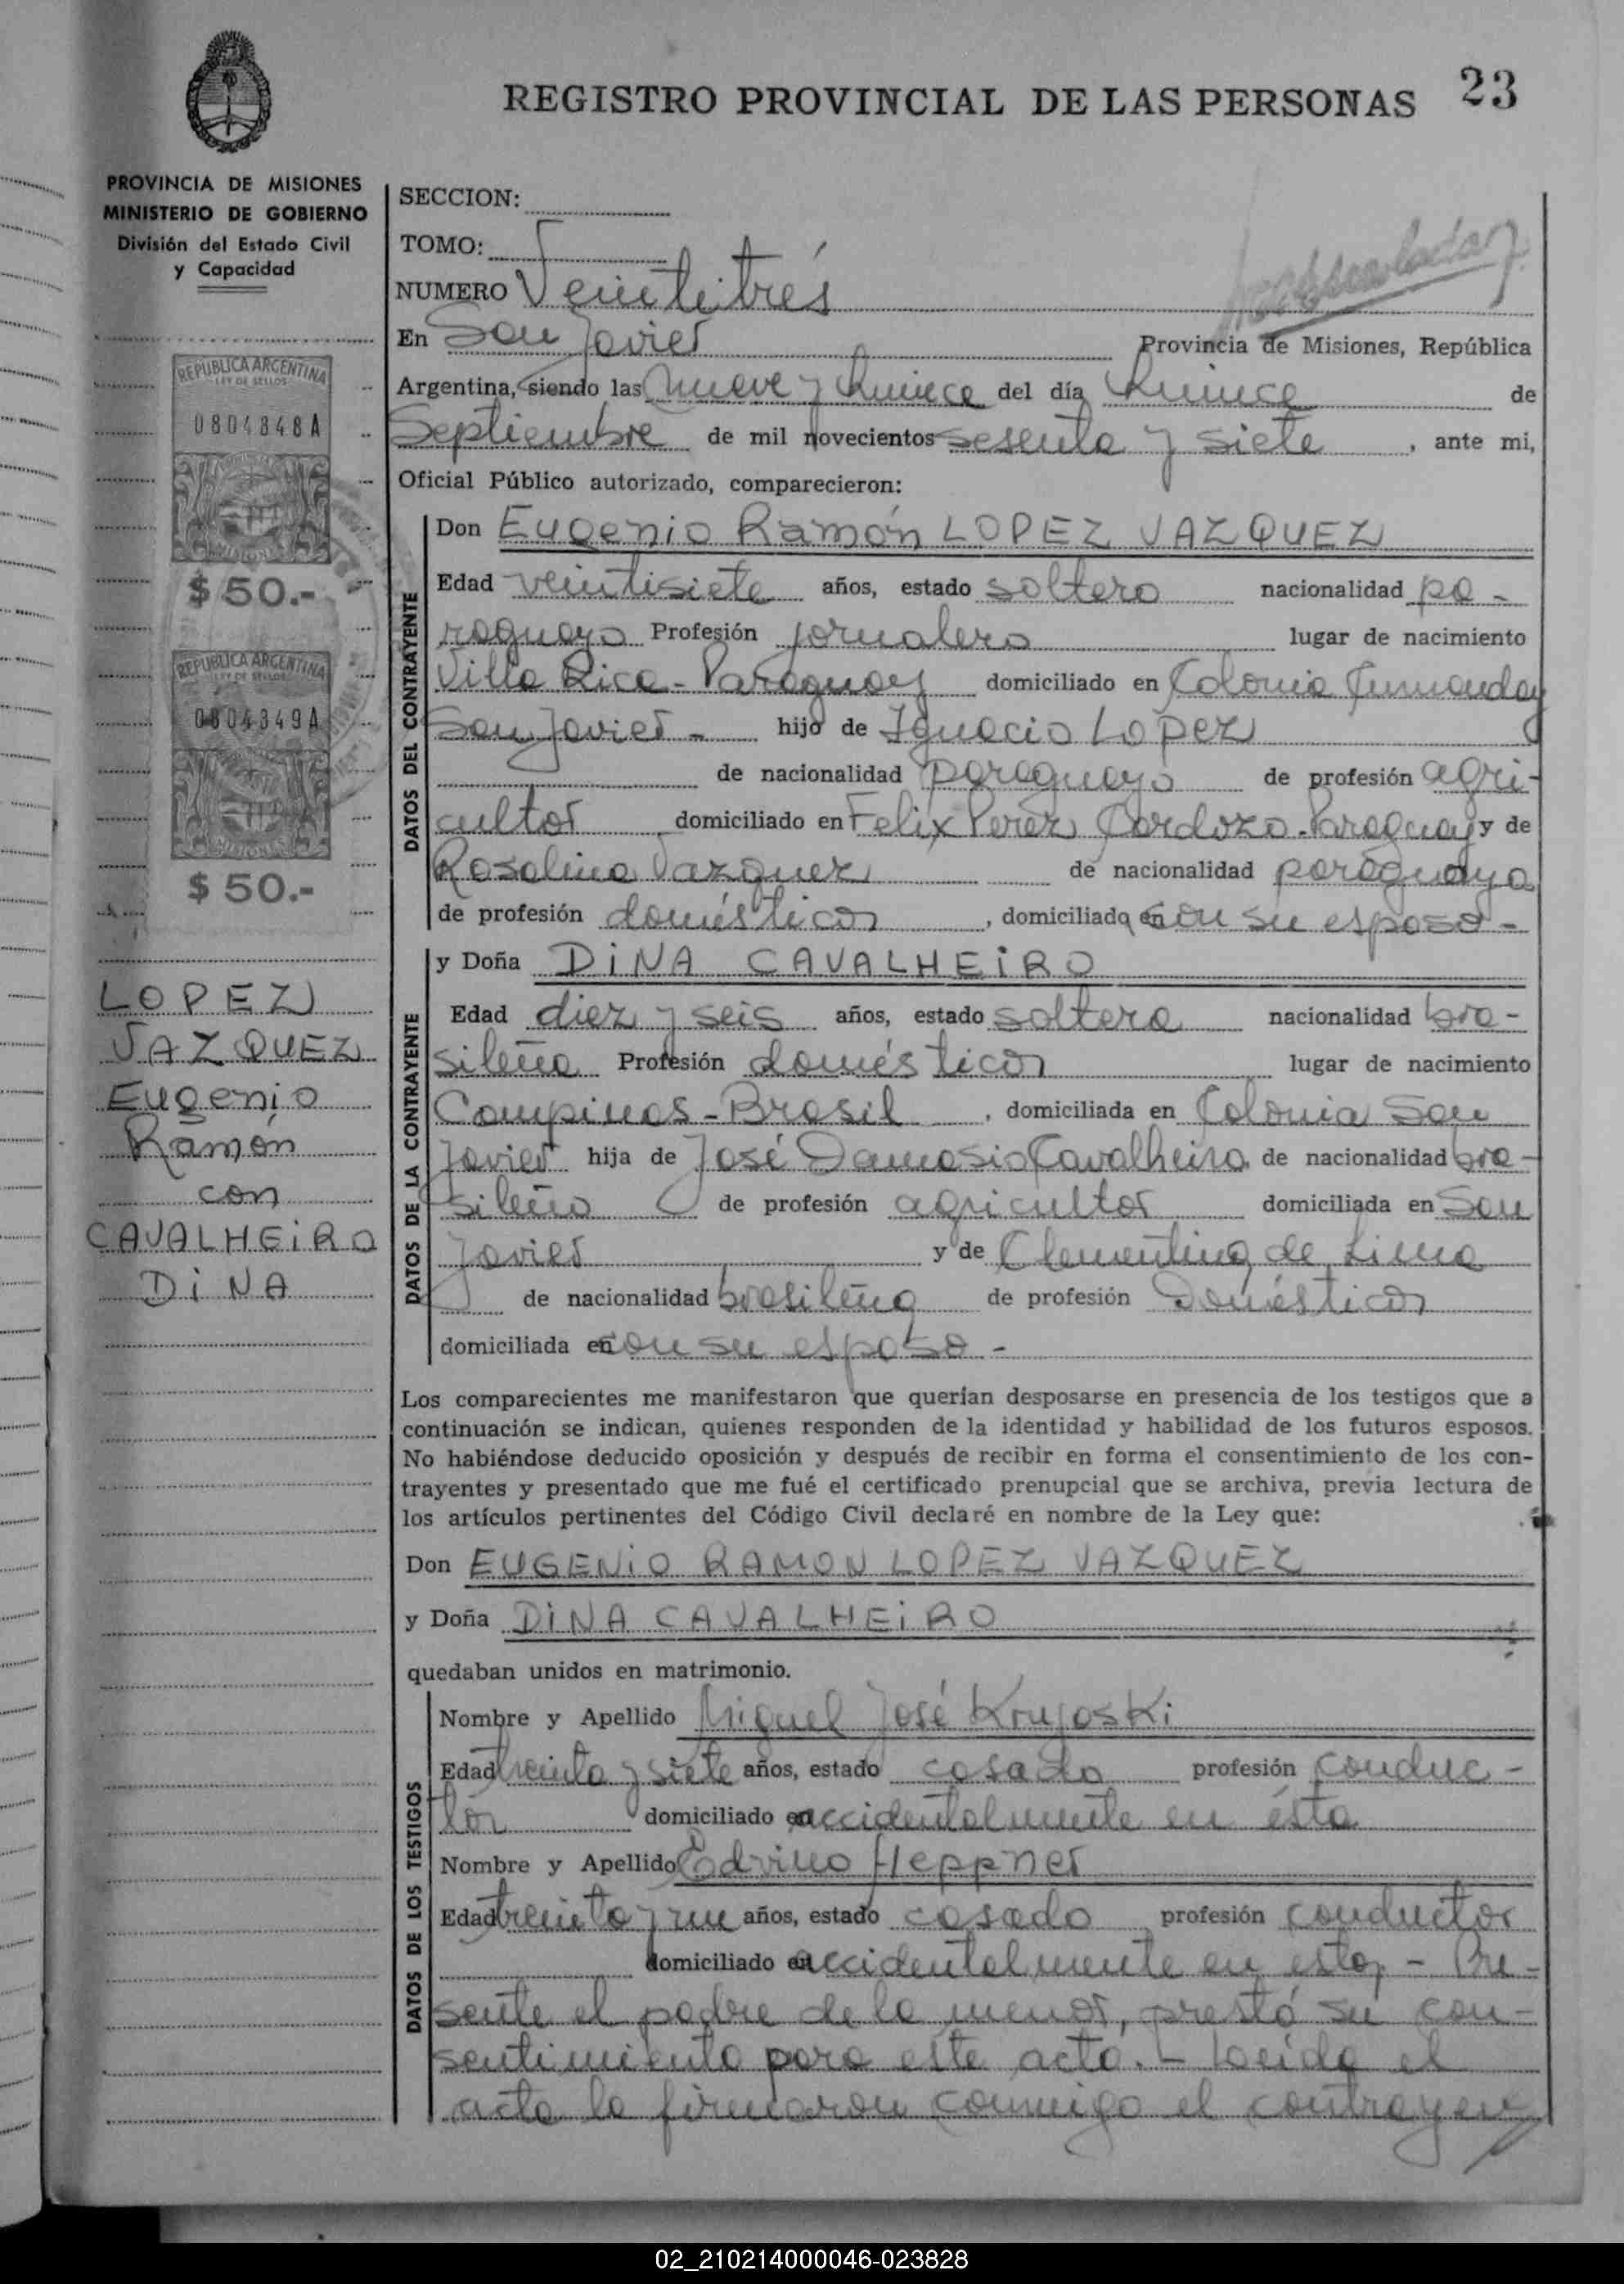 REGISTRO PROVINCIAL DE LAS PERSONAS 23
PROVINCIA DE MISIONES
MINISTERIO DE GOBIERNO
División del Estado Civil
y Capacidad
REPUBLICA ARGENTINA
LEY DE SELLOS
0804848A
MISIONES
$ 50.-
REPUBLICA ARGENTINA
LEY DE SELLOS
0804849A
MISIONES
$ 50.-
LOPEZ
VAZQUEZ
Eugenio
Ramón
con
CAVALHEIRO
DINA
SECCION:
TOMO:
NUMERO Veintitrés
En San Javier Provincia de Misiones, República
Argentina, siendo las nueve y quince del día quince de
Septiembre de mil novecientos sesenta y siete, ante mi,
Oficial Público autorizado, comparecieron:
DATOS DEL CONTRAYENTE
Don Eugenio Ramón LOPEZ VAZQUEZ
Edad veintisiete años, estado soltero nacionalidad pa-
raguayo Profesión jornalero lugar de nacimiento
Villa Rica - Paraguay domiciliado en Colonia
San Javier - hijo de Ignacio Lopez
de nacionalidad paraguayo de profesión agri-
cultor, domiciliado en Felix Perez Cardozo - Paraguay y de
Rosalina Vazquez de nacionalidad paraguaya
de profesión doméstica, domiciliada en con su esposo -
DATOS DE LA CONTRAYENTE
y Doña DINA CAVALHEIRO
Edad diez y seis años, estado soltera nacionalidad bra-
sileña Profesión doméstica lugar de nacimiento
Campinas - Brasil, domiciliada en Colonia San
Javier hija de José Damasio Cavalheiro de nacionalidad bra-
sileño de profesión agricultor domiciliada en San
Javier y de Clementina de Lima
de nacionalidad brasileña de profesión Doméstica
domiciliada en con su esposo -
Los comparecientes me manifestaron que querían desposarse en presencia de los testigos que a
continuación se indican, quienes responden de la identidad y habilidad de los futuros esposos.
No habiéndose deducido oposición y después de recibir en forma el consentimiento de los con-
trayentes y presentado que me fué el certificado prenupcial que se archiva, previa lectura de
los artículos pertinentes del Código Civil declaré en nombre de la Ley que:
Don EUGENIO RAMON LOPEZ VAZQUEZ
y Doña DINA CAVALHEIRO
quedaban unidos en matrimonio.
DATOS DE LOS TESTIGOS
Nombre y Apellido Miguel José Krujoski
Edad treinta y siete años, estado casado profesión conduc-
tor domiciliado en accidentalmente en ésta
Nombre y Apellido Edvino Heppner
Edad treinta y un años, estado casado profesión conductor
domiciliado en accidentalmente en esta, - Pre-
sente el padre de la menor, prestó su con-
sentimiento para este acto. - Leída el
acta la firmaron conmigo el contrayen
02_210214000046-023828